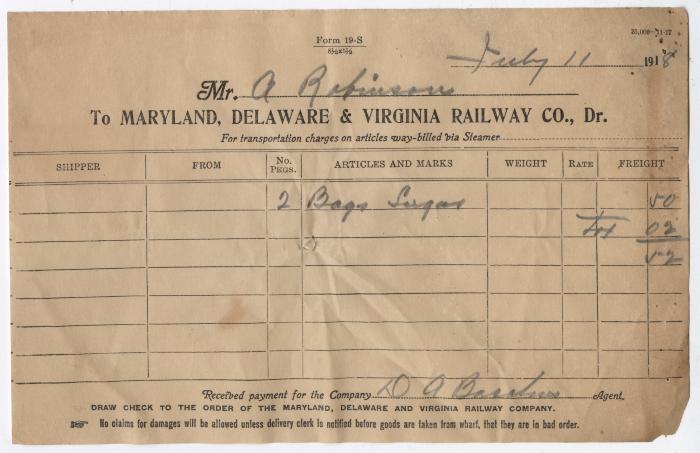 Form 19-S
8½x5½
25,000—11-17
July 11 1918
Mr. A Robinson
To MARYLAND, DELAWARE & VIRGINIA RAILWAY CO., Dr.
For transportation charges on articles way-billed via Steamer
SHIPPER FROM No. PKGS. ARTICLES AND MARKS WEIGHT RATE FREIGHT
2 Bags Sugar 50
Tax 02
52
Received payment for the Company D A Agent.
DRAW CHECK TO THE ORDER OF THE MARYLAND, DELAWARE AND VIRGINIA RAILWAY COMPANY.
No claims for damages will be allowed unless delivery clerk is notified before goods are taken from wharf, that they are in bad order.